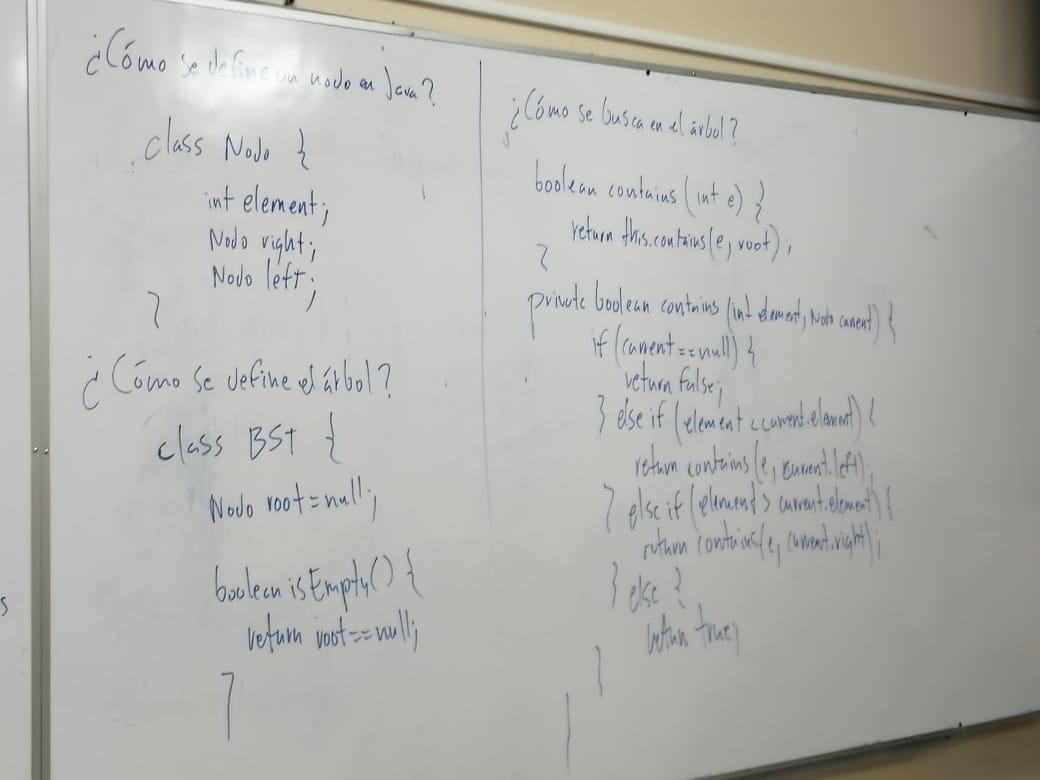 ¿Cómo se define un nodo en Java?
class Nodo {
int element;
Nodo right;
Nodo left;
}
¿Cómo se define el árbol?
class BST {
Nodo root = null;
boolean isEmpty() {
return root == null;
}
¿Cómo se busca en el árbol?
boolean contains (int e) {
return this.contains(e, root);
}
private boolean contains (int element, Nodo current) {
if (current == null) {
return false;
} else if (element < current.element) {
return contains(e, current.left);
} else if (element > current.element) {
return contains(e, current.right);
} else {
return true;
}
}
s